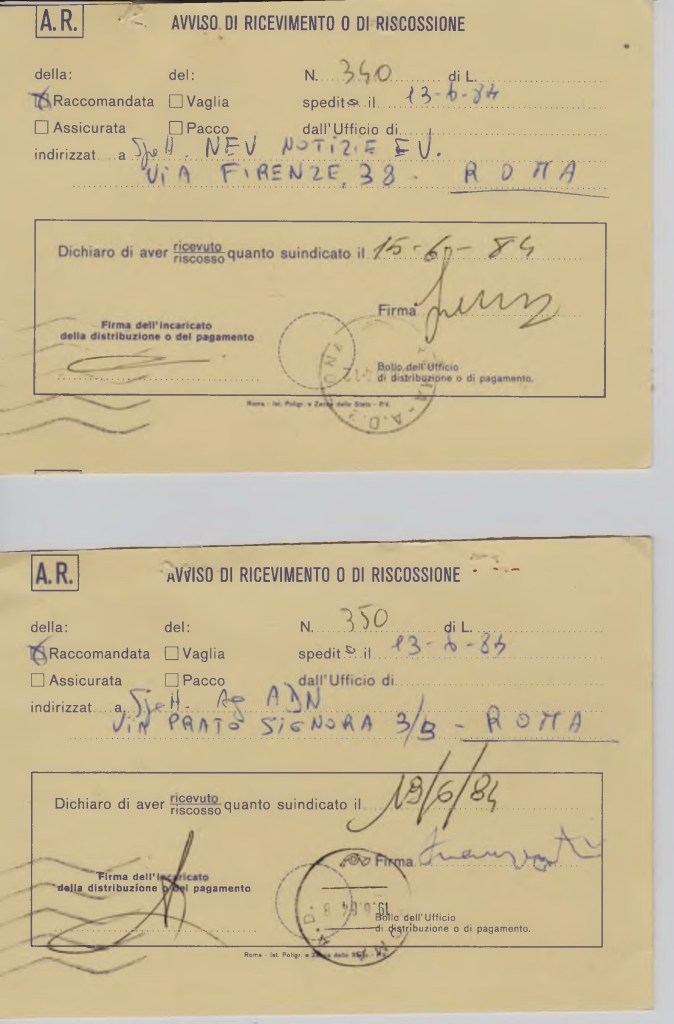 A.R. AVVISO DI RICEVIMENTO O DI RISCOSSIONE
della: del: N. 340 di L.
Raccomandata Vaglia spedito il 13-6-84
Assicurata Pacco dall'Ufficio di
indirizzat a Spett. NEV NOTIZIE EV.
VIA FIRENZE, 38 - ROMA
Dichiaro di aver ricevuto riscosso quanto suindicato il 15-6-84
Firma
Firma dell'incaricato
della distribuzione o del pagamento
Bollo dell'Ufficio
di distribuzione o di pagamento.
Roma - Ist. Poligr. e Zecca dello Stato - P.V.
A.R. AVVISO DI RICEVIMENTO O DI RISCOSSIONE
della: del: N. 350 di L.
Raccomandata Vaglia spedito il 13-6-84
Assicurata Pacco dall'Ufficio di
indirizzat a Spett. Ag ADN
VIA PRATO SIGNORA 3/B - ROMA
Dichiaro di aver ricevuto riscosso quanto suindicato il 19/6/84
Firma
Firma dell'incaricato
della distribuzione o del pagamento
19.6.84
Bollo dell'Ufficio
di distribuzione o di pagamento.
Roma - Ist. Poligr. e Zecca dello Stato - P.V.